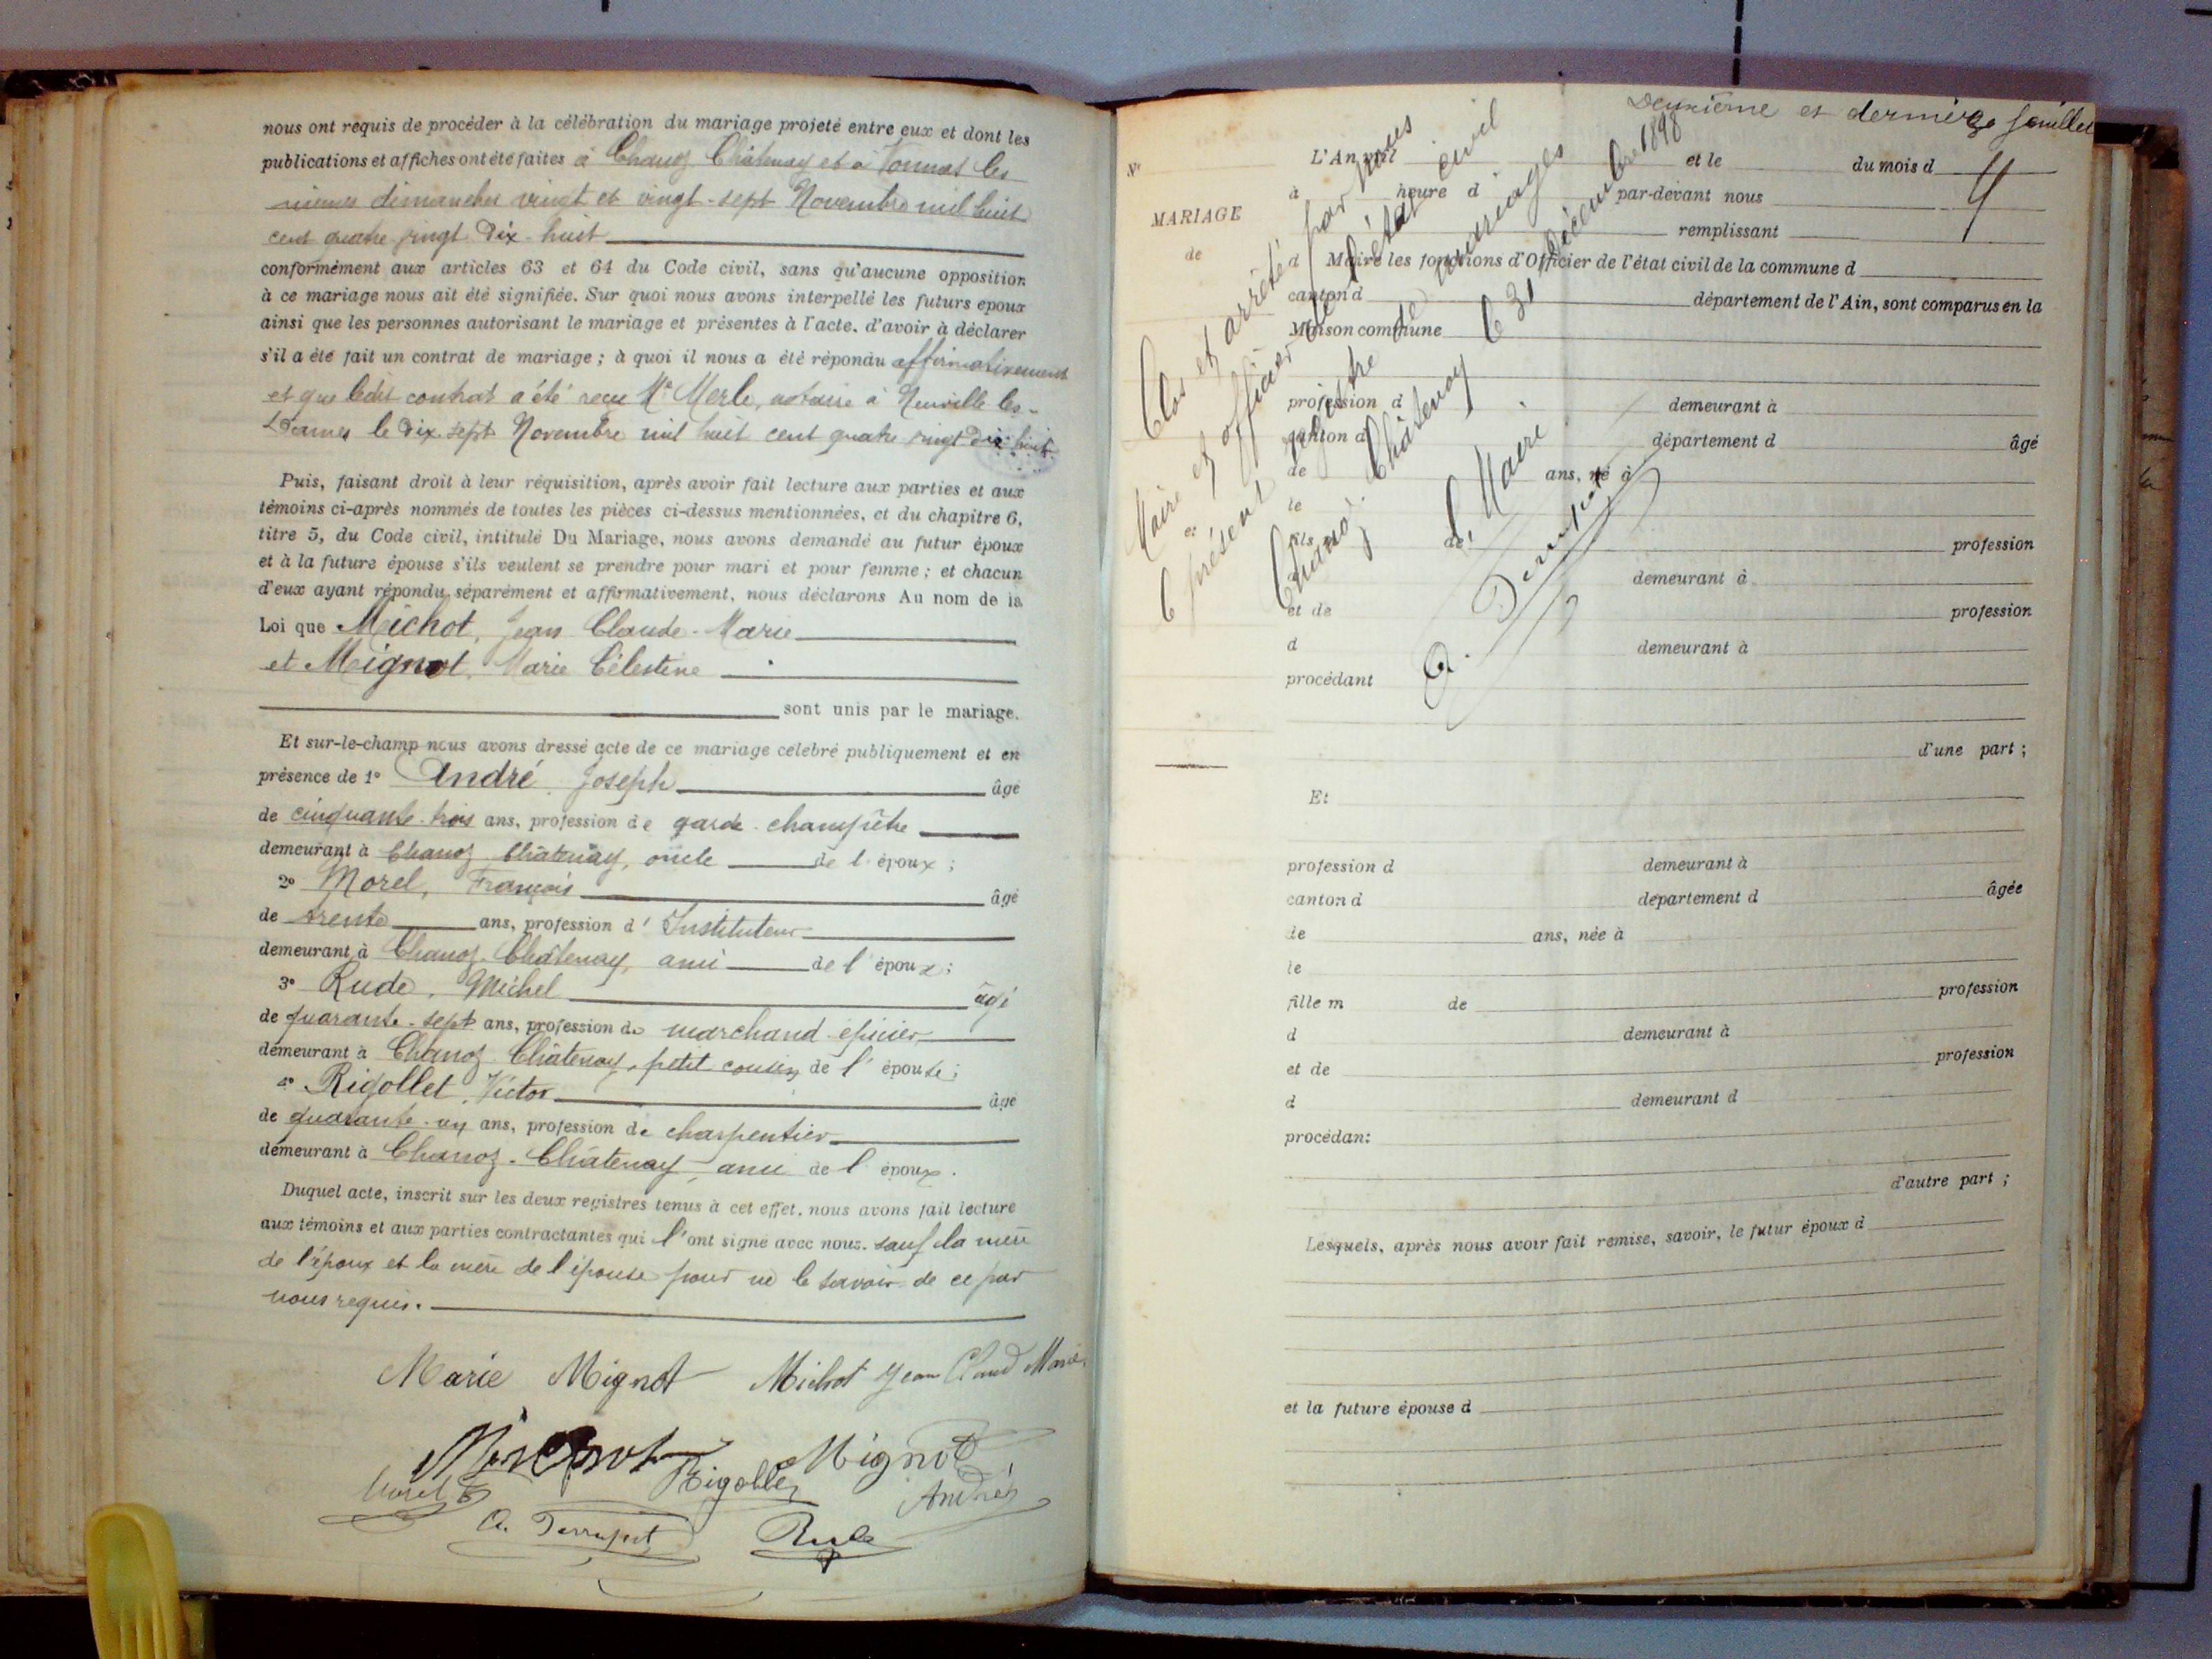 nous ont requis de procéder à la célébration du mariage projeté entre eux et dont les
publications et affiches ont été faites à Chanoz Châtenay et à Vonnas les
mêmes dimanches vingt et vingt-sept Novembre mil huit
cent quatre vingt dix-huit
conformément aux articles 63 et 64 du Code civil, sans qu'aucune opposition
à ce mariage nous ait été signifiée. Sur quoi nous avons interpellé les futurs époux
ainsi que les personnes autorisant le mariage et présentes à l'acte, d'avoir à déclarer
s'il a été fait un contrat de mariage ; à quoi il nous a été répondu affirmativement
et que ledit contrat a été reçu Me Merle, notaire à Neuville-les-
Dames le dix-sept Novembre mil huit cent quatre vingt dix huit
Puis, faisant droit à leur réquisition, après avoir fait lecture aux parties et aux
témoins ci-après nommés de toutes les pièces ci-dessus mentionnées, et du chapitre 6,
titre 5, du Code civil, intitulé Du Mariage, nous avons demandé au futur époux
et à la future épouse s'ils veulent se prendre pour mari et pour femme ; et chacun
d'eux ayant répondu séparément et affirmativement, nous déclarons Au nom de la
Loi que Michot, Jean Claude-Marie
et Mignot, Marie Célestine
sont unis par le mariage.
Et sur-le-champ nous avons dressé acte de ce mariage célébré publiquement et en
présence de 1° André, Joseph âgé
de cinquante-trois ans, profession de garde-champêtre
demeurant à Chanoz-Châtenay, oncle de l'époux ;
2° Morel, François âgé
de trente ans, profession d'Instituteur
demeurant à Chanoz-Châtenay, ami de l'époux ;
3° Rude, Michel âgé
de quarante-sept ans, profession de marchand-épicier
demeurant à Chanoz-Châtenay, petit cousin de l'épouse ;
4° Rigollet, Victor âgé
de quarante-un ans, profession de charpentier
demeurant à Chanoz-Châtenay, ami de l'époux.
Duquel acte, inscrit sur les deux registres tenus à cet effet, nous avons fait lecture
aux témoins et aux parties contractantes qui l'ont signé avec nous. sauf la mère
de l'époux et la mère de l'épouse pour ne le savoir de ce par
nous requis.
Marie Mignot Michot Jean Claud Marie
Mignot
Morel Rigollet André
Rude
Deuxième et dernier feuillet
N° L'An mil et le du mois d
à heure d par-devant nous
MARIAGE remplissant
de d Maire les fonctions d'Officier de l'état civil de la commune d
canton d département de l'Ain, sont comparus en la
Maison commune
profession d demeurant à
canton d département d âgé
de ans, né à
le
et fils m de profession
d demeurant à
et de profession
d demeurant à
procédant
d'une part ;
Et
profession d demeurant à
canton d département d âgée
de ans, née à
le
fille m de profession
d demeurant à
et de profession
d demeurant d
procédant
d'autre part ;
Lesquels, après nous avoir fait remise, savoir, le futur époux d
et la future épouse d
Clos et arrêté par nous
Maire et officier de l'état civil
le présent registre de mariages
Chanoz-Châtenay le 31 décembre 1898
Le Maire